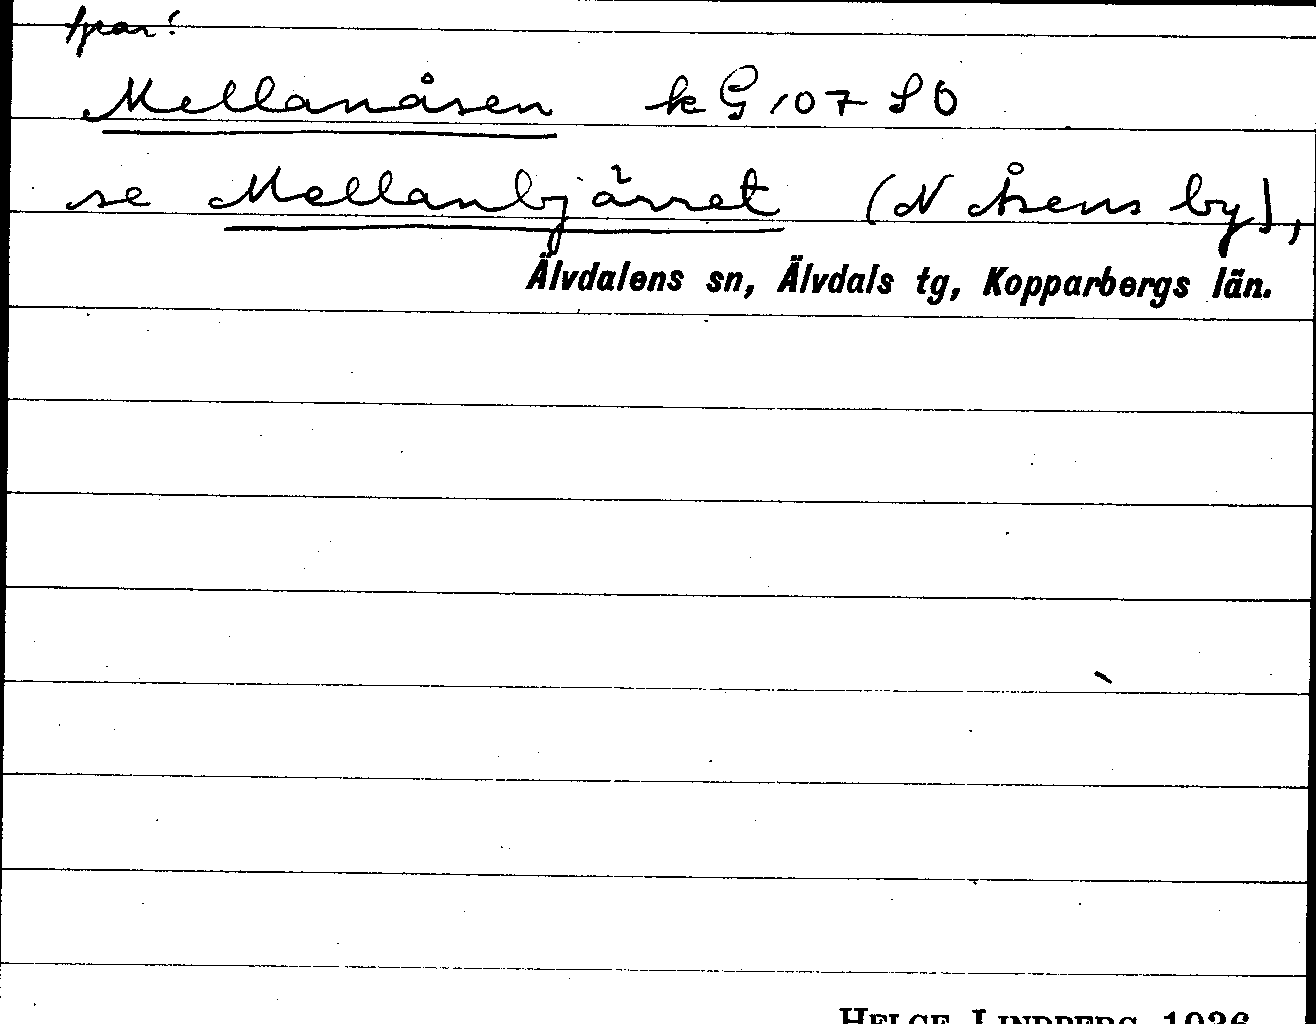 spar:
Mellanåsen k G 107 SO
se Mellanbjärret (N Åsens by),
Älvdalens sn, Älvdals tg, Kopparbergs län.
HELGE LINDBERG 1936